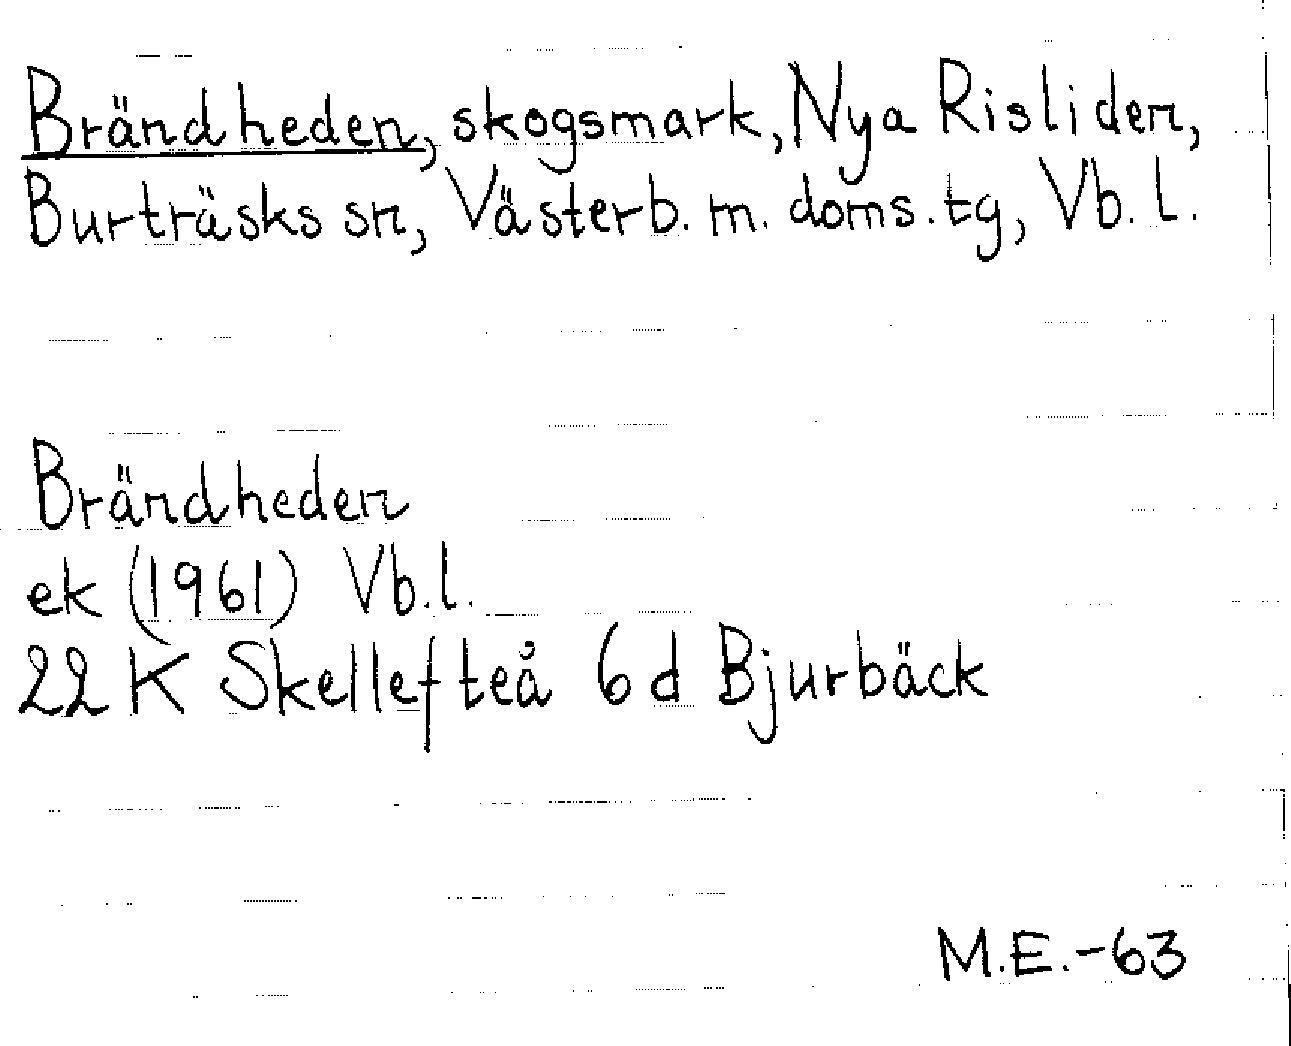 Brändheden, skogsmark, Nya Risliden,
Burträsks sn, Västerb. m. doms. tg, Vb. l.
Brändheden
ek (1961) Vb.l.
22 K Skellefteå 6 d Bjurbäck
M.E.-63